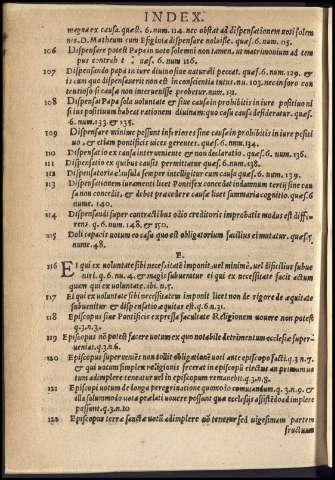 INDEX.
magna ex causa. quæst. 6. num. 114. nec obstat ad dispensationem voti solem
nis. D. Matheum cum Efiginia dispensare noluisse. quæs. 6. num. 115.
106 Dispensare potest Papa in voto solemni non tamen, ut matrimonium ad tem
pus contrah quæs. 6. num 116.
107 Dispensando papa in iure diuino siue naturali peccat. quæs. 6. num. 129. &
tunc quo dispensauerit non est in conscientia tutus. nu. 103. nec in foro con
tentioso si causa non interuenisse probetur. num. 131.
108 Dispensat Papa sola voluntate & sine causa in prohibitis in iure positiuo ni
si ius positiuum habeat rationem diuinam: quo casu causa desideratur. quæs.
6. num. 133. & 135.
109 Dispensare minime possunt inferiores sine causa in prohibitis in iure positi
uo, & etiam pontificis vices gerentes. quæs. 6. num. 134.
110 Dispensatio ex causa interueniente & non declaratio. quæs. 6. num. 136.
111 Dispensatio ex quibus causis permittatur quæs. 6. num. 138.
112 Dispensatoriæ clausula semper intelligitur cum causa quæs. 6. num. 139.
113 Dispensationem iuramenti licet Pontifex concedat in damnum tertij sine cau
sa non concedit, & debet præcedere causa licet summaria cognitio. quæs. 6
nume. 140.
114 Dispensandi super contractibus odio creditoris improbatio modus est diffi-
rens. q. 6. num. 148. & 150.
115 Doli capacis votum eo casu quo est obligatorium facilius eimutatur. quæs. 5
nume. 48.
E.
116 EI qui ex voluntate sibi necessitatẽ imponit, vel minimè, vel dificilius subue
niri. q. 6. nu. 4. & magis subuenitur ei qui ex necessitate facit actum
quem qui ex voluntate. ibi n. 5.
117 Ei qui ex voluntate sibi necessitatem imponit licet non de rigore de æquitate
subuenitur & dispensatio æquitas est. q. 6. n. 31.
118 Episcopus sine Pontificie expressa facultate Religionem vouere non potest
q. 3. n. 3.
119 Episcopus nõ potest facere votum ex quo notabile detrimentum ecclesiæ super
ueniat. q. 3. n. 6.
120 Episcopus superueniẽs non tollit obligationẽ voti ante episcopo facti. q. 3 n. 7.
& qui votum simplex religionis fecerat in episcopũ electus an primum vo
tum adimplere teneatur vel in episcopum remanebit. q. 3. n. 8.
121 Episcopi votum de longa peregrinatione quando so comutandum. q. 3. n. 9. &
alla solummodo vota prælati vouere possunt qua ecclesijs assistẽdo adimplere
possunt. q. 3. n. 10
122 Episcopus terræ sanctæ votũ adimplere nõ tenetur sed vigesimam partem
fructuum